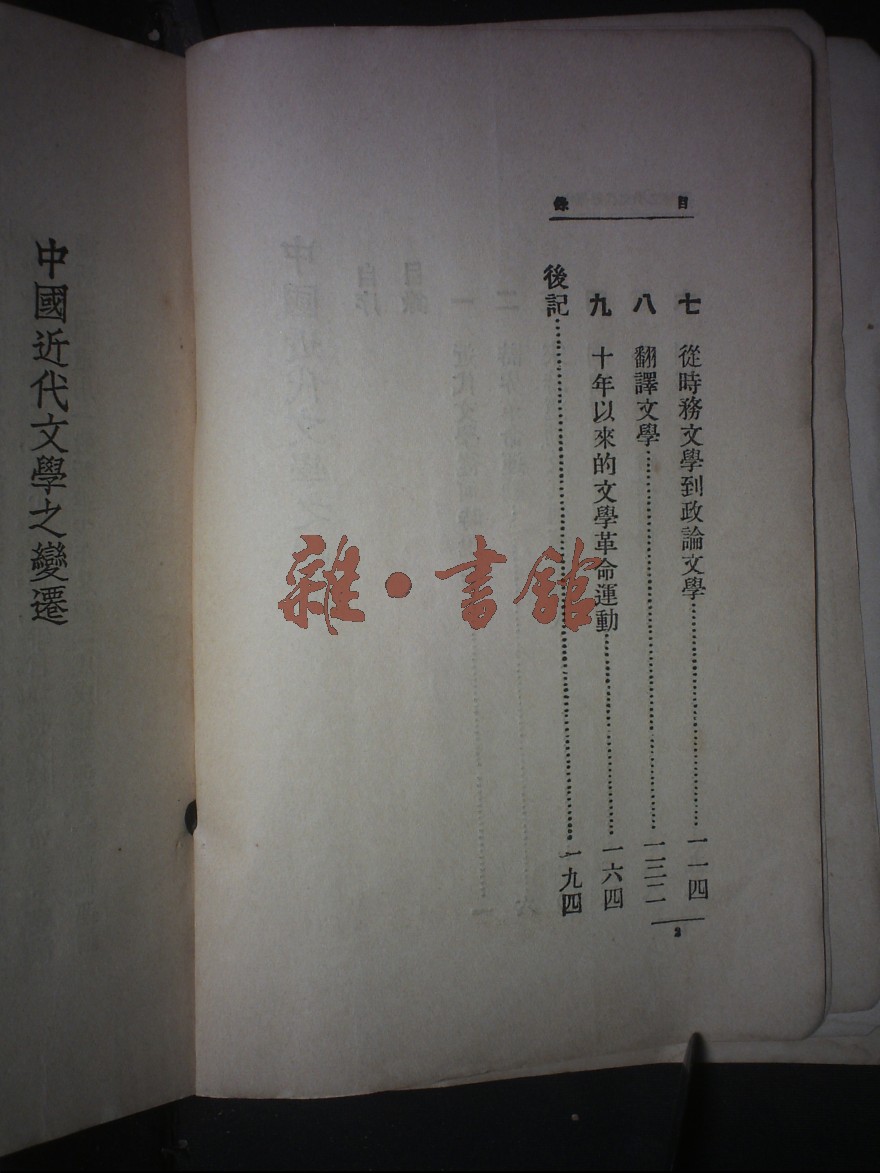 目錄
七 從時務文學到政論文學……一一四
八 翻譯文學……一三二
九 十年以來的文學革命運動……一六四
後記……一九四
2
中國近代文學之變遷
雜·書館